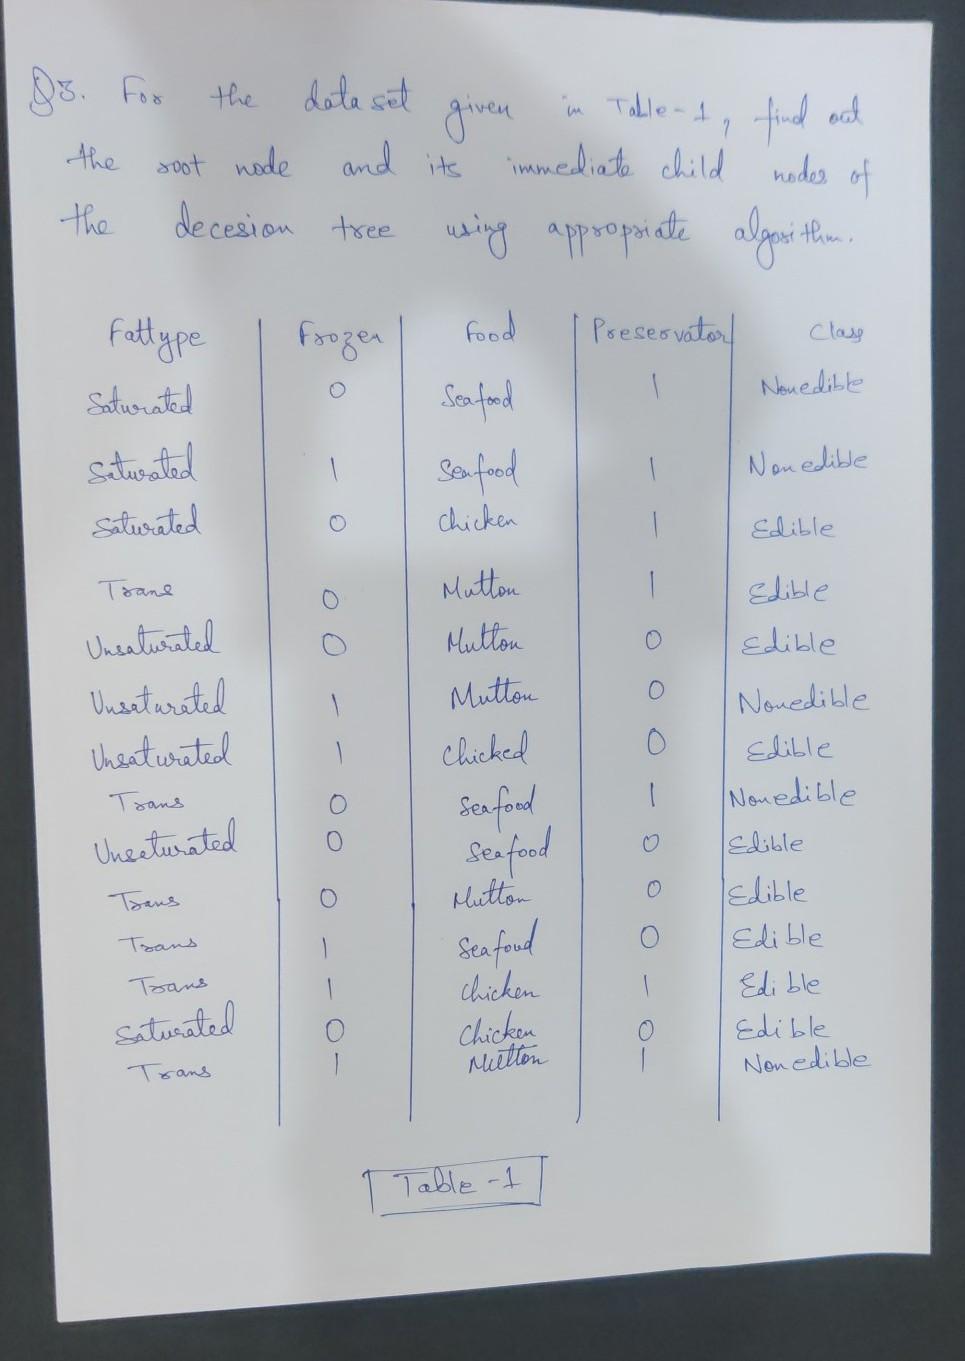 Q3. For the data set given in Table-1, find out
the root node and its immediate child nodes of
the decesion tree using appropriate algorithm.
Fattype Frozen Food Preservator Class
Saturated 0 Seafood 1 Nonedible
Saturated 1 Seafood 1 Nonedible
Saturated 0 Chicken 1 Edible
Trans 0 Mutton 1 Edible
Unsaturated 0 Mutton 0 Edible
Unsaturated 1 Mutton 0 Nonedible
Unsaturated 1 Chicked 0 Edible
Trans 0 Seafood 1 Nonedible
Unsaturated 0 Seafood 0 Edible
Trans 0 Mutton 0 Edible
Trans 1 Seafood 0 Edible
Trans 1 Chicken 1 Edible
Saturated 0 Chicken 0 Edible
Trans 1 Mutton 1 Nonedible
Table-1